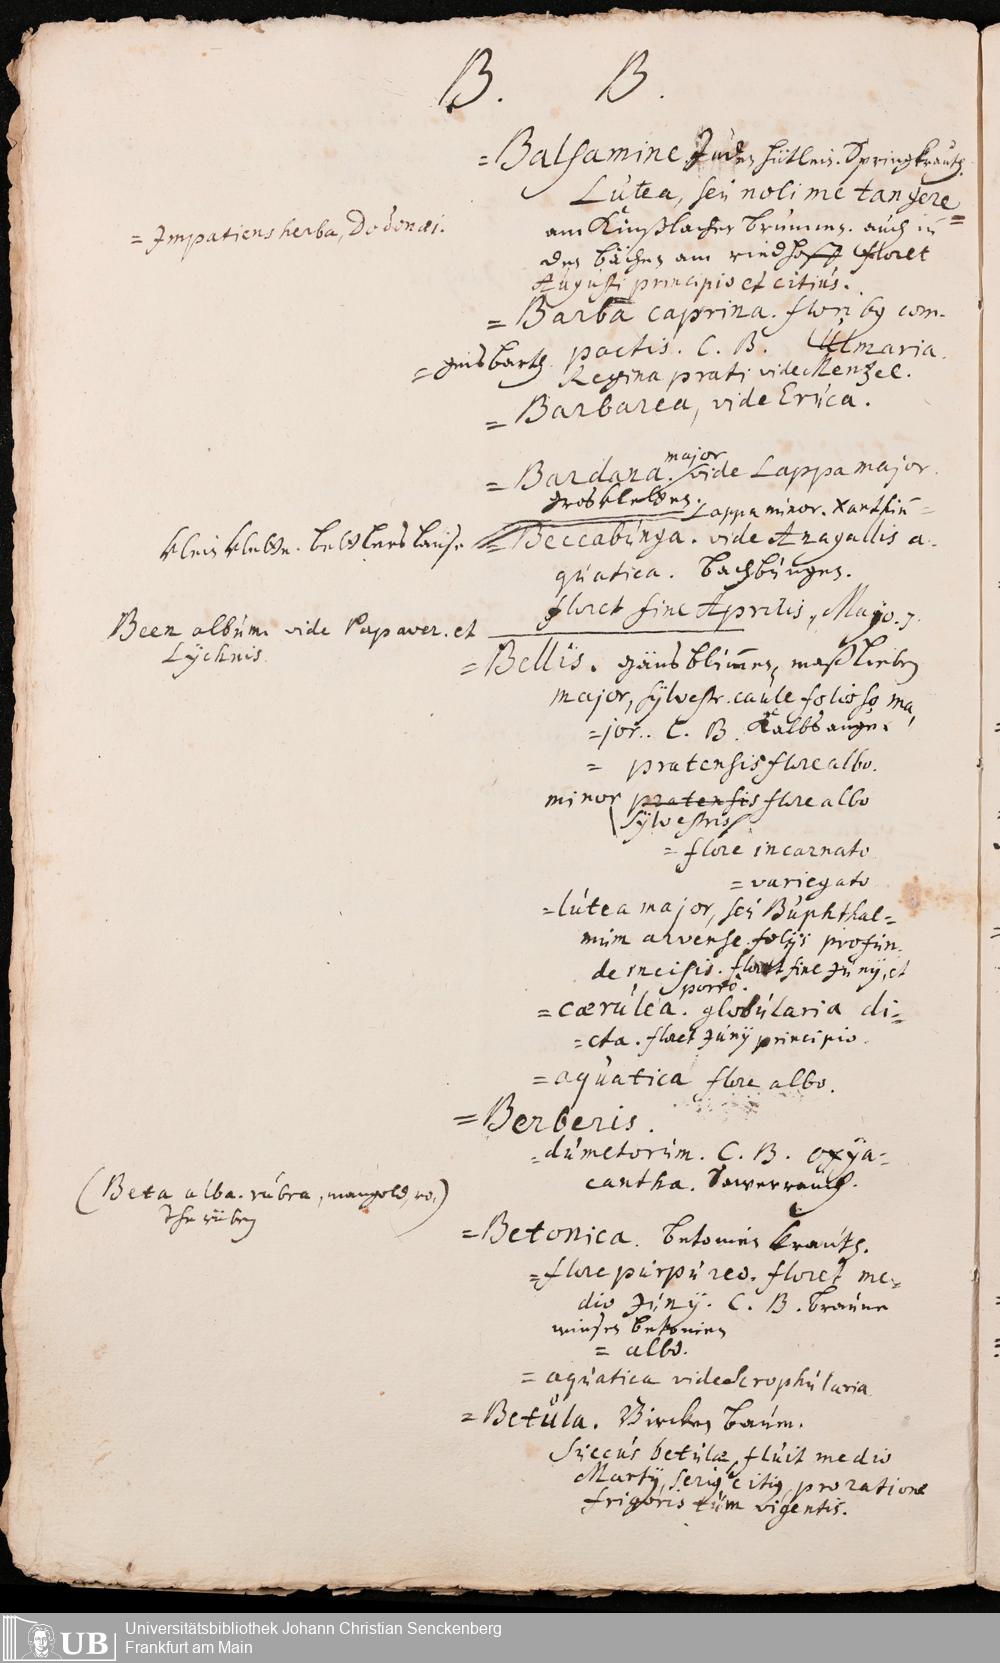 B. B.
= Balsamine Juden hütlein. Springkraut.
Lutea, seu noli me tangere =
= Impatiens herba, Dodonæi.
am Kinßlacher brunnen. auch in
den bächen am riedhoff floret
Augusti principio et citius.
= Barba caprina. flori by com-
= geisbarth. pactis. C. B. Ulmaria.
Regina prati vide Menzel.
= Barbarea, vide Eruca.
= Bardana major. vide Lappa major.
gros kletten. Lappa minor. Xanthiu =
klein klette. bettlers läuse
= Beccabunga. vide Anagallis a-
quatica. bachbungen.
floret fine Aprilis, Majo.
Been album vide Papaver. et
Lychnis.
= Bellis. gänsblumen, maßlieben
major, sylvestr. caule folioso ma,
= jor.. C. B. Kalbsauge.
= pratensis flore albo.
minor pratensis flore albo
sylvestris
= flore incarnato
= variegato
= lutea major, seu Buphthal=
mum arvense folijs profun-
de incisis. floret fine Junij, et
porro.
= cærulea. globularia di=
= cta. floret Junij principio.
= aquatica flore albo.
= Berberis.
= dumetorum. C. B. oxya=
cantha. Sawerrauch.
(Beta alba. rubra, mangold, ro,)
the rüben
= Betonica. betonien kraut.
= flore purpureo. floret me=
dio Junij. C. B. braune
wiesen betonien
= albo.
= aquatica vide Scrophularia
= Betula. Bircken baum.
Succus betulæ, fluit medio
Martij, seriq citiq, pro ratione
frigoris tum vigentis.
UB
Universitätsbibliothek Johann Christian Senckenberg
Frankfurt am Main